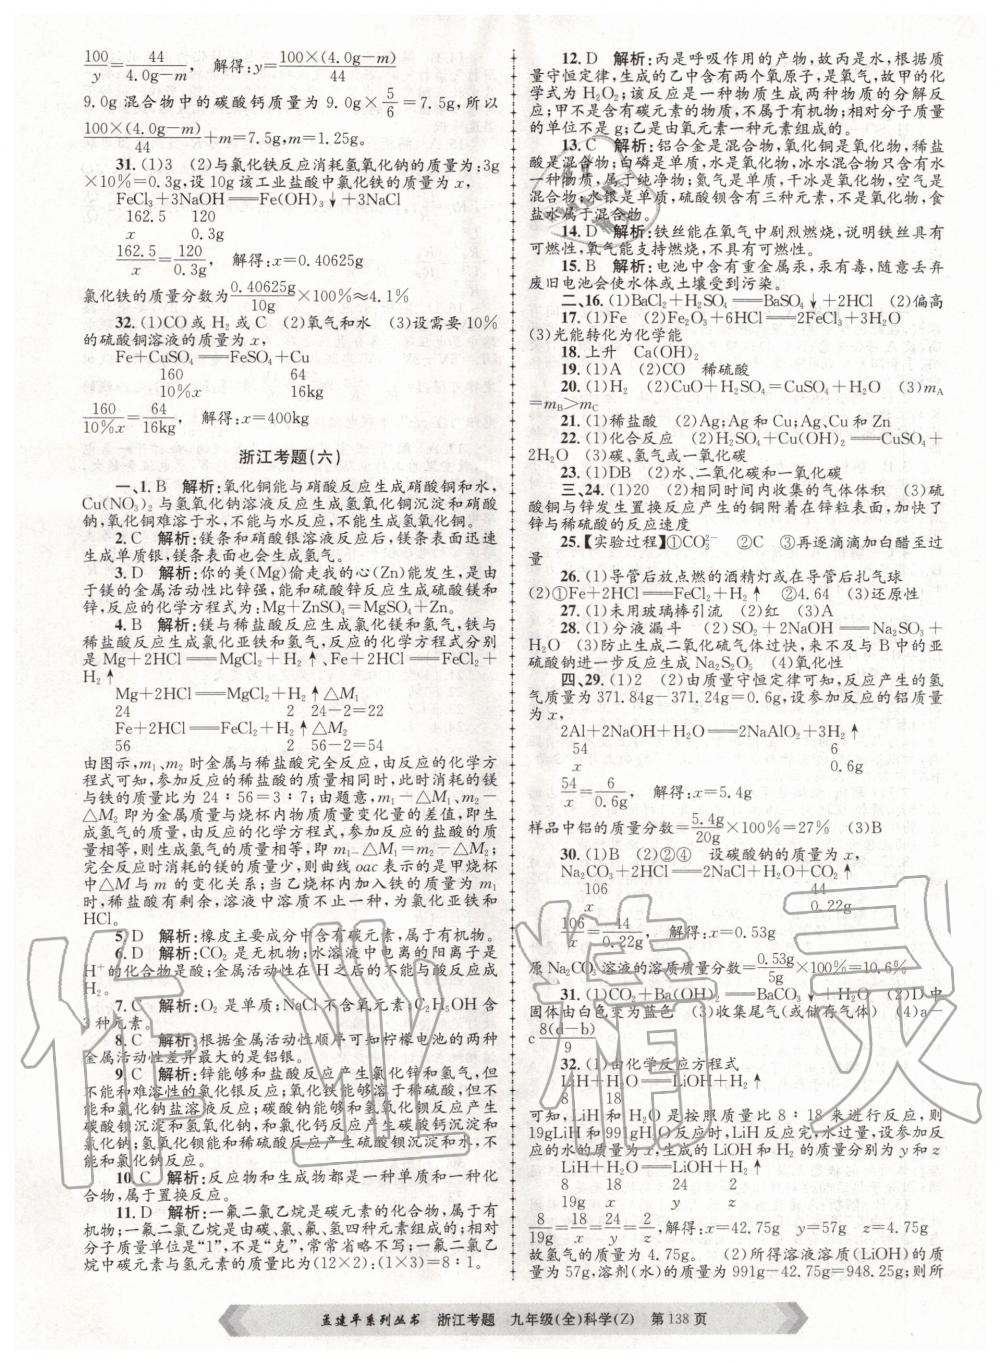 100/y=44/(4.0g-m)，解得:y=100×(4.0g-m)/44
9.0g 混合物中的碳酸钙质量为 9.0g×5/6=7.5g,所以
100×(4.0g-m)/44+m=7.5g,m=1.25g。
31.(1)3 (2)与氯化铁反应消耗氢氧化钠的质量为:3g
×10%=0.3g,设 10g 该工业盐酸中氯化铁的质量为 x,
FeCl₃+3NaOH══Fe(OH)₃↓+3NaCl
162.5 120
x 0.3g
162.5/x=120/0.3g,解得:x=0.40625g
氯化铁的质量分数为0.40625g/10g×100%≈4.1%
32.(1)CO 或 H₂ 或 C (2)氧气和水 (3)设需要 10%
的硫酸铜溶液的质量为 x,
Fe+CuSO₄══FeSO₄+Cu
160 64
10%x 16kg
160/10%x=64/16kg,解得:x=400kg
浙江考题(六)
一、1. B 解析:氧化铜能与硝酸反应生成硝酸铜和水,
Cu(NO₃)₂ 与氢氧化钠溶液反应生成氢氧化铜沉淀和硝酸
钠,氧化铜难溶于水,不能与水反应,不能生成氢氧化铜。
2. C 解析:镁条和硝酸银溶液反应后,镁条表面迅速
生成单质银,镁条表面也会生成氢气。
3. D 解析:你的美(Mg)偷走我的心(Zn)能发生,是由
于镁的金属活动性比锌强,能和硫酸锌反应生成硫酸镁和
锌,反应的化学方程式为:Mg+ZnSO₄=MgSO₄+Zn。
4. B 解析:镁与稀盐酸反应生成氯化镁和氢气,铁与
稀盐酸反应生成氯化亚铁和氢气,反应的化学方程式分别
是 Mg+2HCl══MgCl₂+H₂↑、Fe+2HCl══FeCl₂+
H₂↑
Mg+2HCl══MgCl₂+H₂↑△M₁
24 2 24-2=22
Fe+2HCl══FeCl₂+H₂↑△M₂
56 2 56-2=54
由图示,m₁、m₂ 时金属与稀盐酸完全反应,由反应的化学方
程式可知,参加反应的稀盐酸的质量相同时,此时消耗的镁
与铁的质量比为 24∶56=3∶7;由题意,m₁-△M₁、m₂-
△M₂ 即为金属质量与烧杯内物质质量变化量的差值,即生
成氢气的质量,由反应的化学方程式,参加反应的盐酸的质
量相等,则生成氢气的质量相等,即 m₁-△M₁=m₂-△M₂;
完全反应时消耗的镁的质量少,则曲线 oac 表示的是甲烧杯
中△M 与 m 的变化关系;当乙烧杯内加入铁的质量为 m₁
时,稀盐酸有剩余,溶液中溶质不止一种,为氯化亚铁和
HCl。
5. D 解析:橡皮主要成分中含有碳元素,属于有机物。
6. D 解析:CO₂ 是无机物;水溶液中电离的阳离子是
H⁺的化合物是酸;金属活动性在 H 之后的不能与酸反应成
H₂。
7. C 解析:O₂ 是单质;NaCl 不含氧元素;C₂H₅OH 含
3 种元素。
8. C 解析:根据金属活动性可知柠檬电池的两种
金属活动性差异最大的是铝银。
9. C 解析:锌能够和盐酸反应产生氯化锌和氢气,但
不能和难溶性的氯化银反应;氧化铁能够溶于稀硫酸,但不
能和氯化钠盐溶液反应;碳酸钠能够和氢氧化钡反应产生
碳酸钡沉淀和氢氧化钠,和氯化钙反应产生碳酸钙沉淀和
氯化钠;氢氧化钡能和稀硫酸反应产生硫酸钡沉淀和水,不
能和氯化钠反应。
10. C 解析:反应物和生成物都是一种单质和一种化
合物,属于置换反应。
11. D 解析:一氟二氯乙烷是碳元素的化合物,属于有
机物;一氟二氯乙烷是由碳、氯、氟、氢四种元素组成的;相对
分子质量单位是“1”,不是“克”,常常省略不写;一氟二氯乙
烷中碳元素与氢元素的质量比为(12×2)∶(1×3)=8∶1。
12. D 解析:丙是呼吸作用的产物,故丙是水,根据质
量守恒定律,生成的乙中含有两个氧原子,是氧气,故甲的化
学式为 H₂O₂;该反应是一种物质生成两种物质的分解反
应;甲不是含有碳元素的物质,不属于有机物;相对分子质量
的单位不是 g;乙是由氧元素一种元素组成的。
13. C 解析:铝合金是混合物,氧化铜是氧化物,稀盐
酸是混合物;白磷是单质,水是氧化物,冰水混合物只含有水
一种物质,属于纯净物;氮气是单质,干冰是氧化物,空气是
混合物;水银是单质,硫酸钡含有三种元素,不是氧化物,食
盐水属于混合物。
14. D 解析:铁丝能在氧气中剧烈燃烧,说明铁丝具有
可燃性,氧气能支持燃烧,不具有可燃性。
15. B 解析:电池中含有重金属汞,汞有毒,随意丢弃
废旧电池会使水体或土壤受到污染。
二、16.(1)BaCl₂+H₂SO₄══BaSO₄↓+2HCl (2)偏高
17.(1)Fe (2)Fe₂O₃+6HCl══2FeCl₃+3H₂O
(3)光能转化为化学能
18. 上升 Ca(OH)₂
19.(1)A (2)CO 稀硫酸
20.(1)H₂ (2)CuO+H₂SO₄=CuSO₄+H₂O (3)m_A
=m_B>m_C
21.(1)稀盐酸 (2)Ag;Ag 和 Cu;Ag、Cu 和 Zn
22.(1)化合反应 (2)H₂SO₄+Cu(OH)₂══CuSO₄+
2H₂O (3)碳、氢气或一氧化碳
23.(1)DB (2)水、二氧化碳和一氧化碳
三、24.(1)20 (2)相同时间内收集的气体体积 (3)硫
酸铜与锌发生置换反应产生的铜附着在锌粒表面,加快了
锌与稀硫酸的反应速度
25.【实验过程】①CO₃²⁻ ②C ③再逐滴滴加白醋至过
量
26.(1)导管后放点燃的酒精灯或在导管后扎气球
(2)①Fe+2HCl══FeCl₂+H₂↑ ②4.64 (3)还原性
27.(1)未用玻璃棒引流 (2)红 (3)A
28.(1)分液漏斗 (2)SO₂+2NaOH══Na₂SO₃+
H₂O (3)防止生成二氧化硫气体过快,来不及与 B 中的亚
硫酸钠进一步反应生成 Na₂S₂O₅ (4)氧化性
四、29.(1)2 (2)由质量守恒定律可知,反应产生的氢
气质量为 371.84g-371.24g=0.6g,设参加反应的铝质量
为 x,
2Al+2NaOH+H₂O══2NaAlO₂+3H₂↑
54 6
x 0.6g
54/x=6/0.6g,解得:x=5.4g
样品中铝的质量分数=5.4g/20g×100%=27% (3)B
30.(1)B (2)②④ 设碳酸钠的质量为 x,
Na₂CO₃+2HCl══2NaCl+H₂O+CO₂↑
106 44
x 0.22g
106/x=44/0.22g,解得:x=0.53g
原 Na₂CO₃ 溶液的溶质质量分数=0.53g/5g×100%=10.6%
31.(1)CO₂+Ba(OH)₂══BaCO₃↓+H₂O (2)D 中
固体由白色变为蓝色 (3)收集尾气(或储存气体) (4)a-
c 8(d-b)/9
32.(1)由化学反应方程式
LiH+H₂O══LiOH+H₂↑
8 18
可知,LiH 和 H₂O 是按照质量比 8∶18 来进行反应,则
19gLiH 和 991gH₂O 反应时,LiH 反应完,水过量,设参加反
应的水的质量为 x,生成的 LiOH 和 H₂ 的质量分别为 y 和 z
LiH+H₂O══LiOH+H₂↑
8 18 24 2
19g x y z
8/19g=18/x=24/y=2/z,解得:x=42.75g y=57g z=4.75g
故氢气的质量为 4.75g。 (2)所得溶液溶质(LiOH)的质
量为 57g,溶剂(水)的质量为 991g-42.75g=948.25g;则所
孟建平系列丛书 浙江考题 九年级(全)科学(Z) 第 138 页
作业精灵